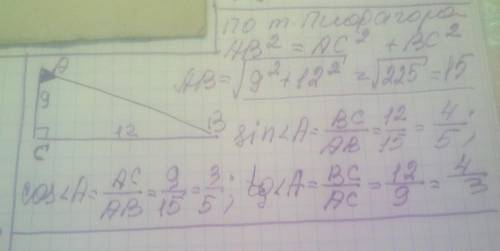 по т. Пифагора
AB² = AC² + BC²
AB = √9² + 12² = √225 = 15
A
9
C
12
B
sin∠A = BC/AB = 12/15 = 4/5;
cos∠A = AC/AB = 9/15 = 3/5; tg∠A = BC/AC = 12/9 = 4/3